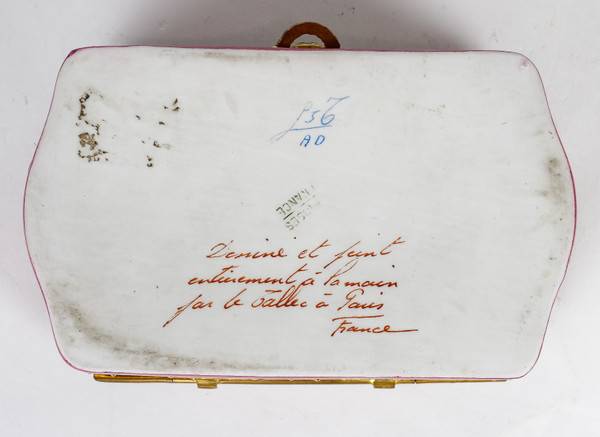 AD
LIMOGES
FRANCE
Dessiné et peint
entièrement à la main
par le Tallec à Paris
France